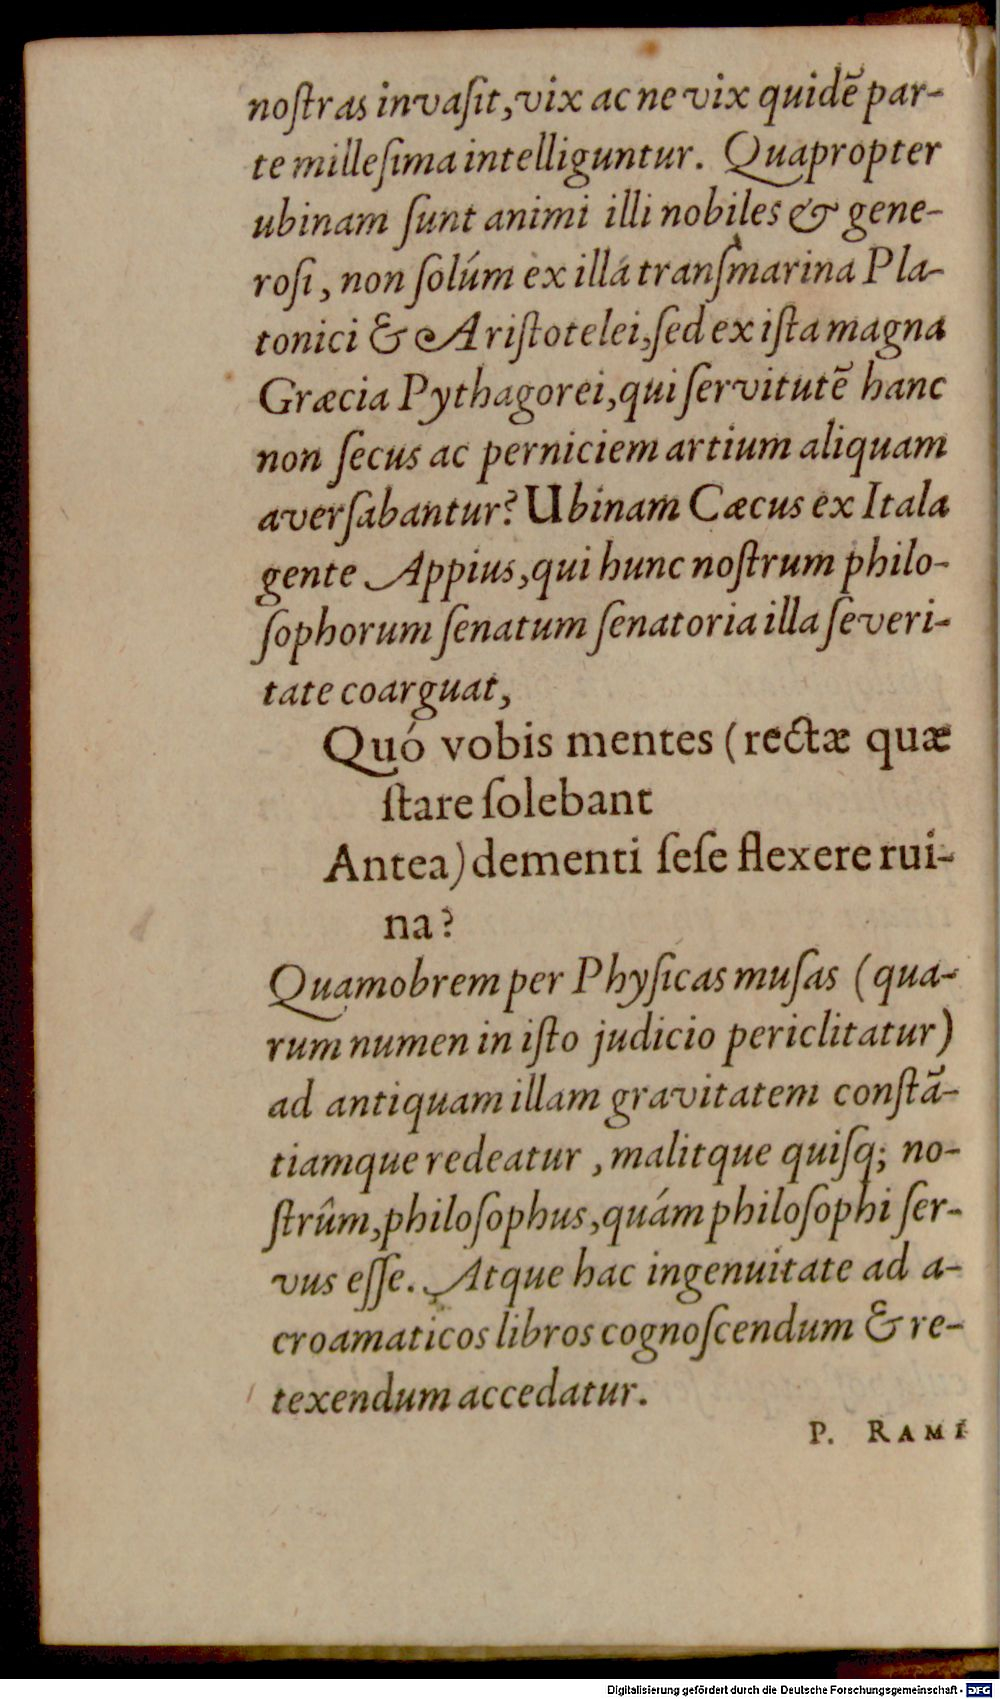 noſtras invaſit, vix ac ne vix quidē par-
te milleſima intelliguntur. Quapropter
ubinam ſunt animi illi nobiles & gene-
roſi, non ſolúm ex illa tranſmarina Pla-
tonici & Ariſtotelei, ſed ex iſta magna
Græcia Pythagorei, qui ſervitutē hanc
non ſecus ac perniciem artium aliquam
averſabantur? Ubinam Cæcus ex Itala
gente Appius, qui hunc noſtrum philo-
ſophorum ſenatum ſenatoria illa ſeveri-
tate coarguat,
Quó vobis mentes (rectæ quæ
ſtare ſolebant
Antea) dementi ſeſe flexere rui-
na?
Quamobrem per Phyſicas muſas (qua-
rum numen in iſto judicio periclitatur)
ad antiquam illam gravitatem conſtā-
tiamque redeatur, malitque quiſq; no-
ſtrûm, philoſophus, quám philoſophi ſer-
vus eſſe. Atque hac ingenuitate ad a-
croamaticos libros cognoſcendum & re-
texendum accedatur.
P. RAMI
Digitalisierung gefördert durch die Deutsche Forschungsgemeinschaft - DFG